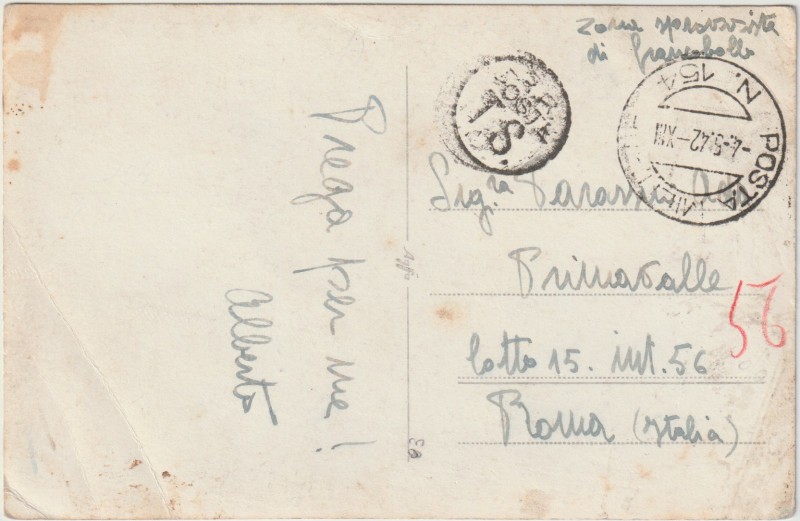 Zona sprovvista
di francobolli
POSTA MILITARE
N. 154
-4.5.42-XX
POSTA
T.S.
Prega per me!
Alberto
Sig.ra
Primavalle
lotto 15. int. 56
Roma (Italia)
56